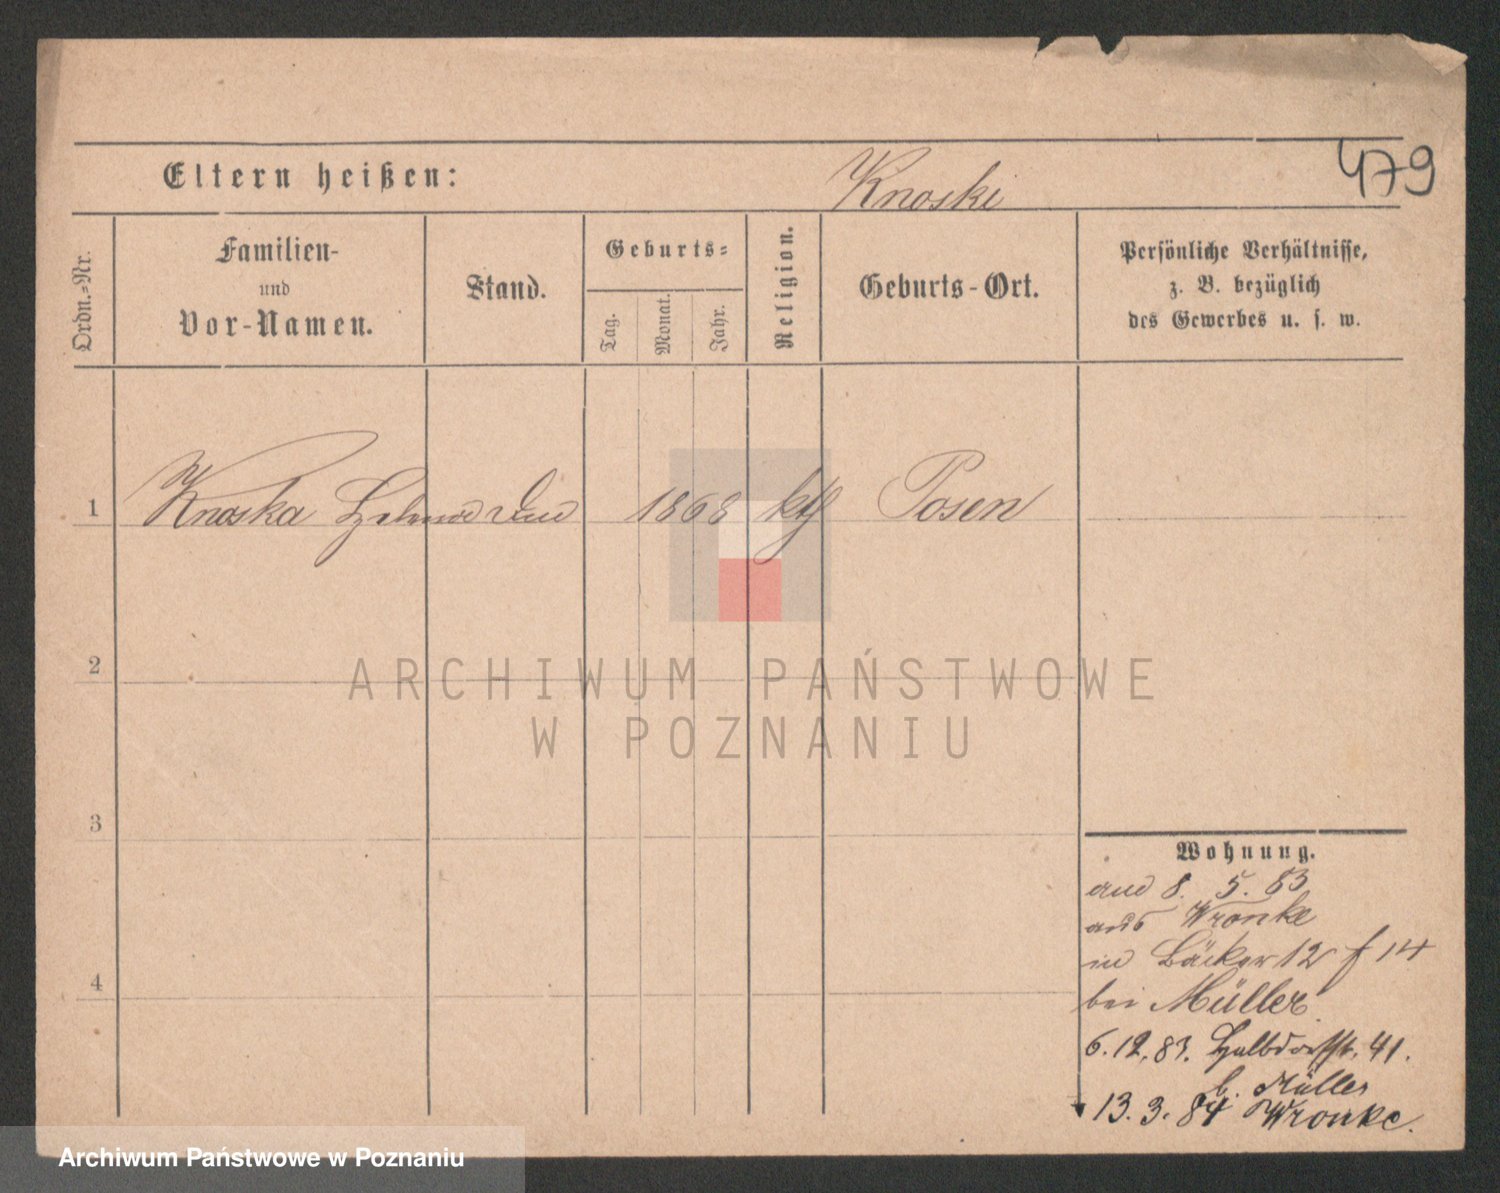 479
Eltern heißen: Knoski
Ordn.-Nr.
Familien-
und
Vor-Namen.
Stand.
Geburts-
Tag.
Monat.
Jahr.
Religion.
Geburts-Ort.
Persönliche Verhältnisse,
z. B. bezüglich
des Gewerbes u. s. w.
1 Knoska Helena 1868 kth Posen
2
ARCHIWUM PAŃSTWOWE
W POZNANIU
3
4
Wohnung.
8. 5. 83
aus Wronke
in Bäcker 12 f 14
bei Müller
6.12.83. Halbdorfstr. 41.
b. Müller
13. 3. 84 Wronke.
Archiwum Państwowe w Poznaniu